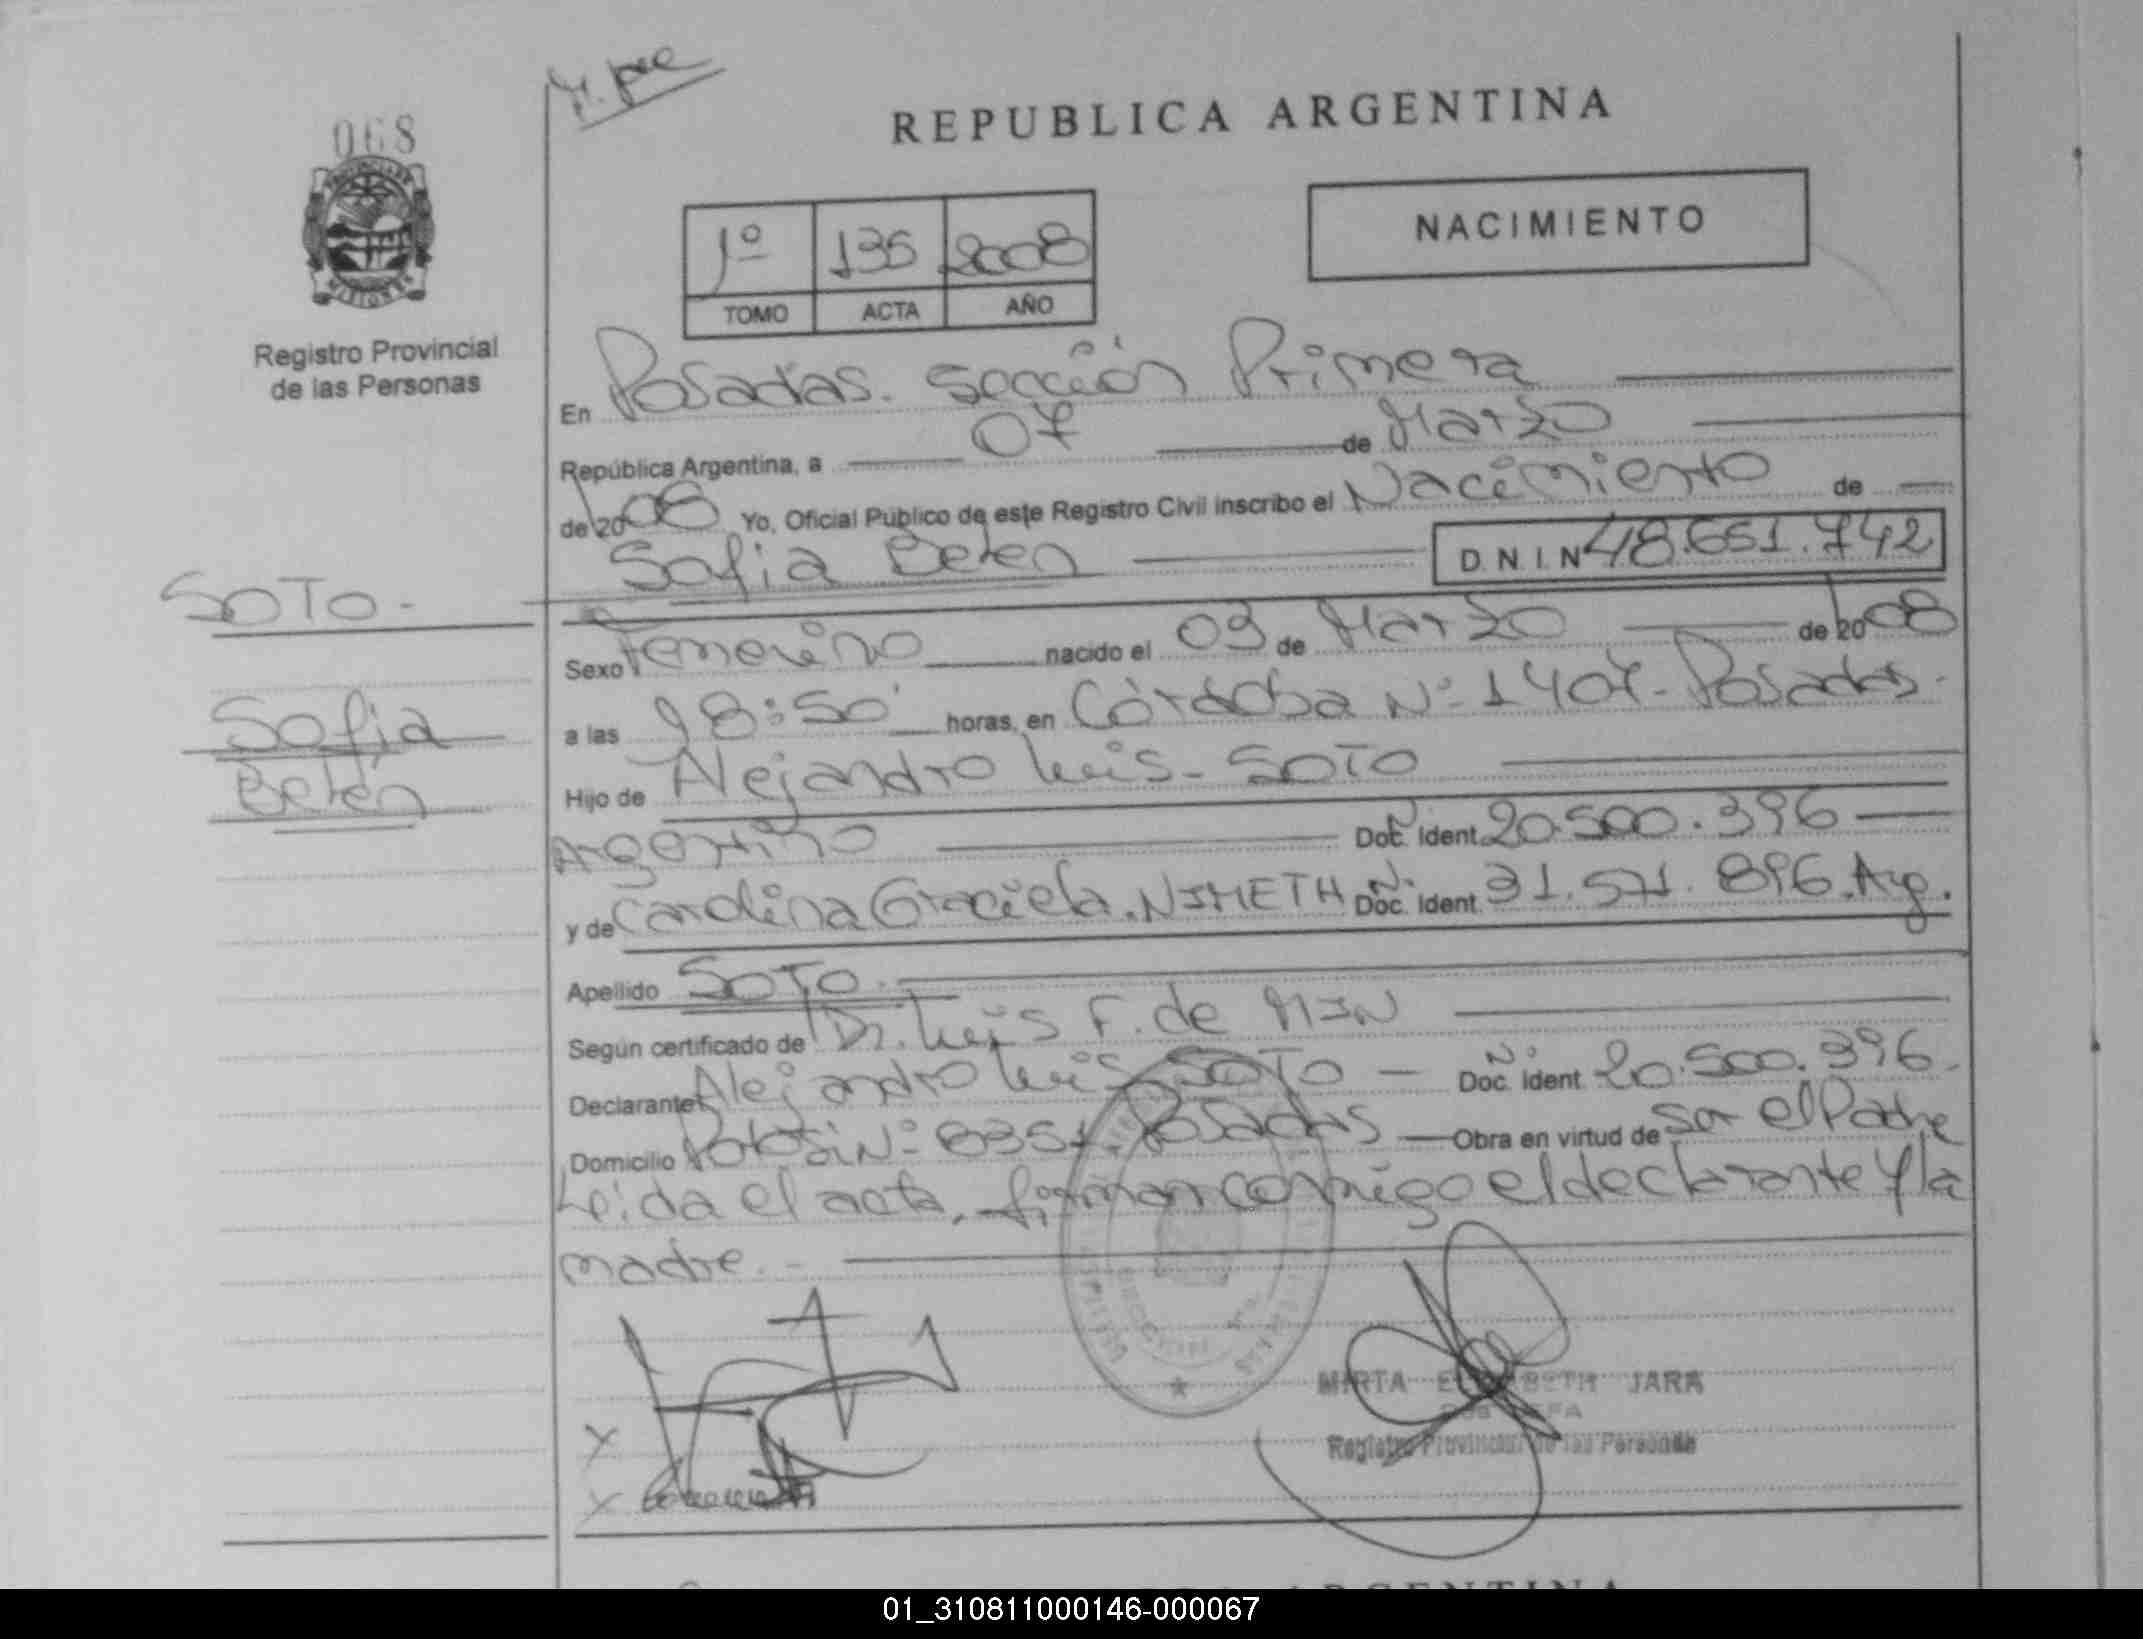 068
REPUBLICA ARGENTINA
PROVINCIA DE MISIONES
Registro Provincial
de las Personas
1º 135 2008
TOMO ACTA AÑO
NACIMIENTO
En Posadas. Sección Primera
República Argentina, a 07 de Marzo
de 2008 Yo, Oficial Público de este Registro Civil inscribo el Nacimiento de
Sofia Belén D.N.I.N 48.651.742
SOTO.-
Sofia
Belén
Sexo Femenino nacido el 03 de Marzo de 2008
a las 18:50' horas, en Córdoba Nº 1407- Posadas.
Hijo de Alejandro Luis- SOTO
Argentino Nº Doc. Ident. 20.500.396
y de Carolina Graciela. NIMETH Nº Doc. Ident. 31.571.896. Arg.
Apellido SOTO.
Según certificado de Dr. Luis F. de MIN
Declarante Alejandro Luis SOTO Nº Doc. Ident. 20.500.396.
Domicilio Potosi Nº 8351. Posadas Obra en virtud de ser el Padre
Leida el acta, firman conmigo el declarante y la
madre.-
MIRTA ELIZABETH JARA
SUB JEFA
Registro Provincial de las Personas
REPUBLICA ARGENTINA
01_310811000146-000067